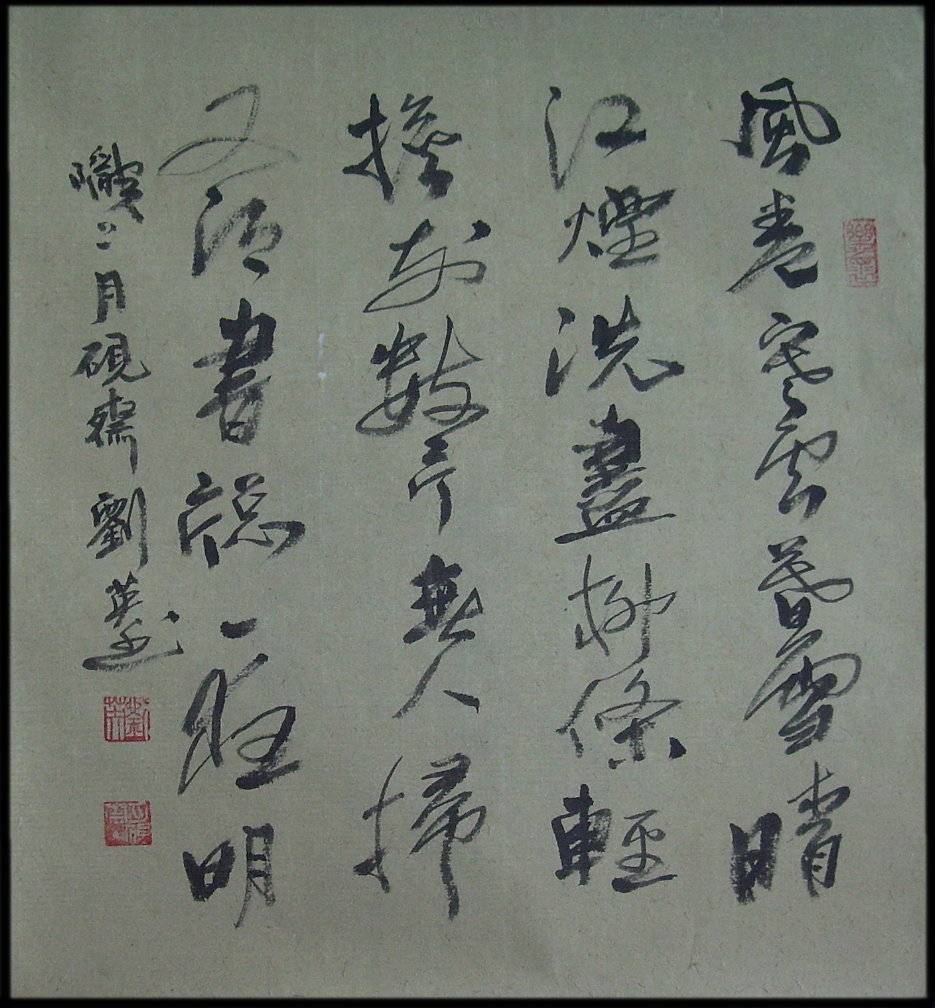 風卷寒雲暮雪晴
江煙洗盡柳條輕
檐前數片無人掃
又得書窓一夜明
臘二月硯齋劉英